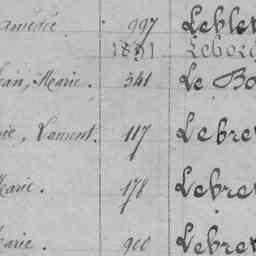 amédée. 997 Leble
1881 Leborg
ean, Marie. 341 Le Bo
ie, Laurent. 117 Lebre
Marie. 178 Lebre
Marie. 900 Lebre